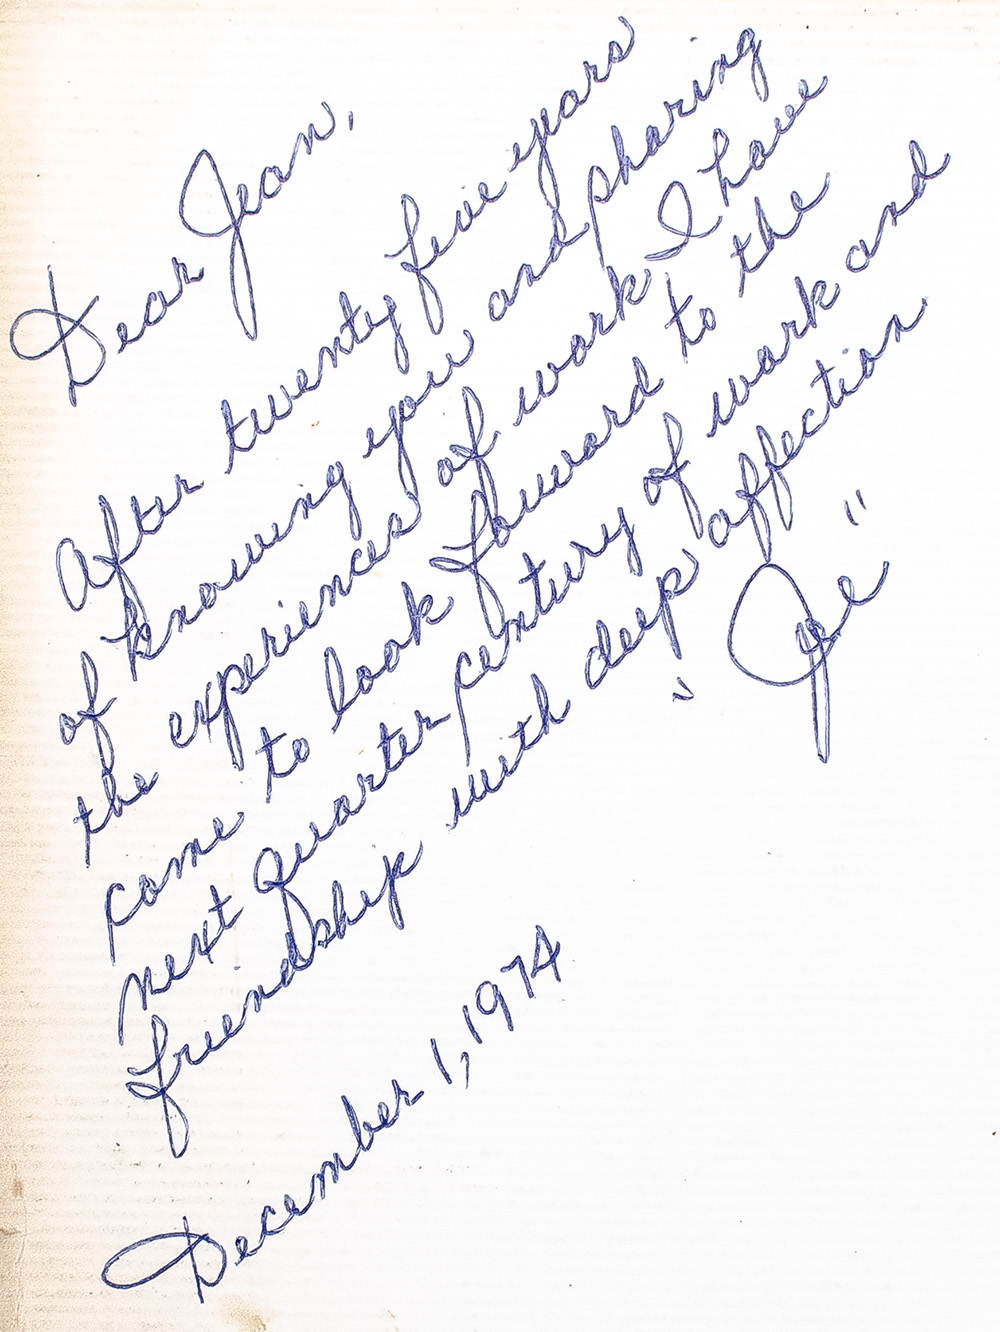 Dear Jean,
After twenty five years
of knowing you and sharing
the experiences of work I have
come to look foward to the
next quarter century of work and
friendship with deep affection
"Joe"
December 1, 1974